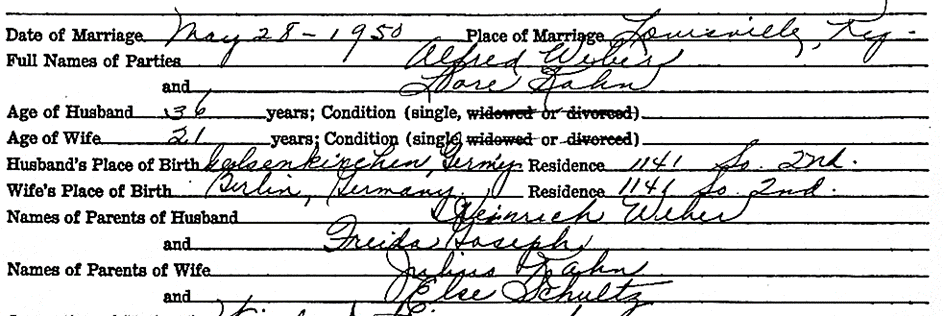 Date of Marriage May 28 - 1950 Place of Marriage Louisville, Ky -
Full Names of Parties Alfred Weber
and Lore Kahn
Age of Husband 36 years; Condition (single, widowed or divorced)
Age of Wife 21 years; Condition (single, widowed or divorced)
Husband's Place of Birth Gelsenkirchen, Germ'y Residence 1141 So. 2nd.
Wife's Place of Birth Berlin, Germany. Residence 1141 So. 2nd.
Names of Parents of Husband Heinrich Weber
and Freida Joseph
Names of Parents of Wife Julius Kahn
and Else Schultz